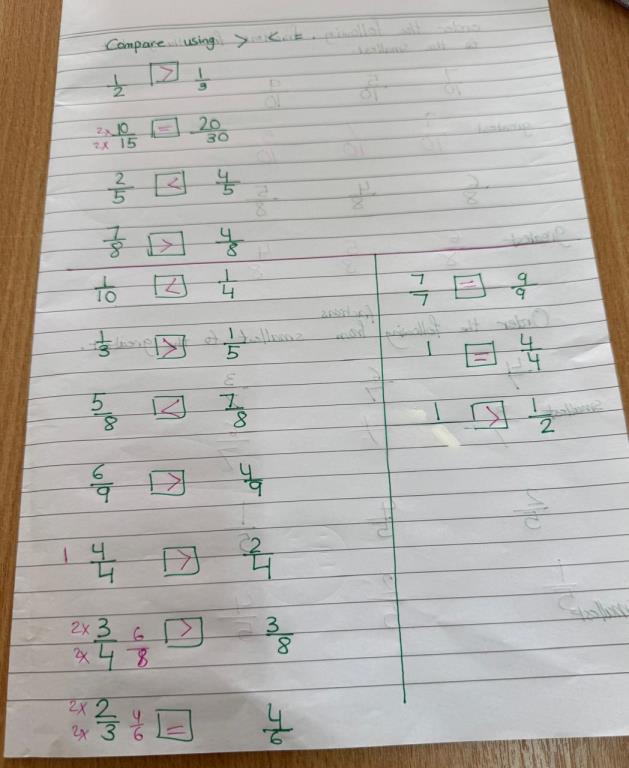 Compare using > < = .
1/2 > 1/9
2x 2x 10/15 = 20/30
2/5 < 4/5
7/8 > 4/8
1/10 < 1/4
1/3 > 1/5
5/8 < 7/8
6/9 > 4/9
1 4/4 > 2/4
2x 2x 3/4 6/8 > 3/8
2x 2x 2/3 4/6 = 4/6
7/7 = 9/9
1 = 4/4
1 > 1/2